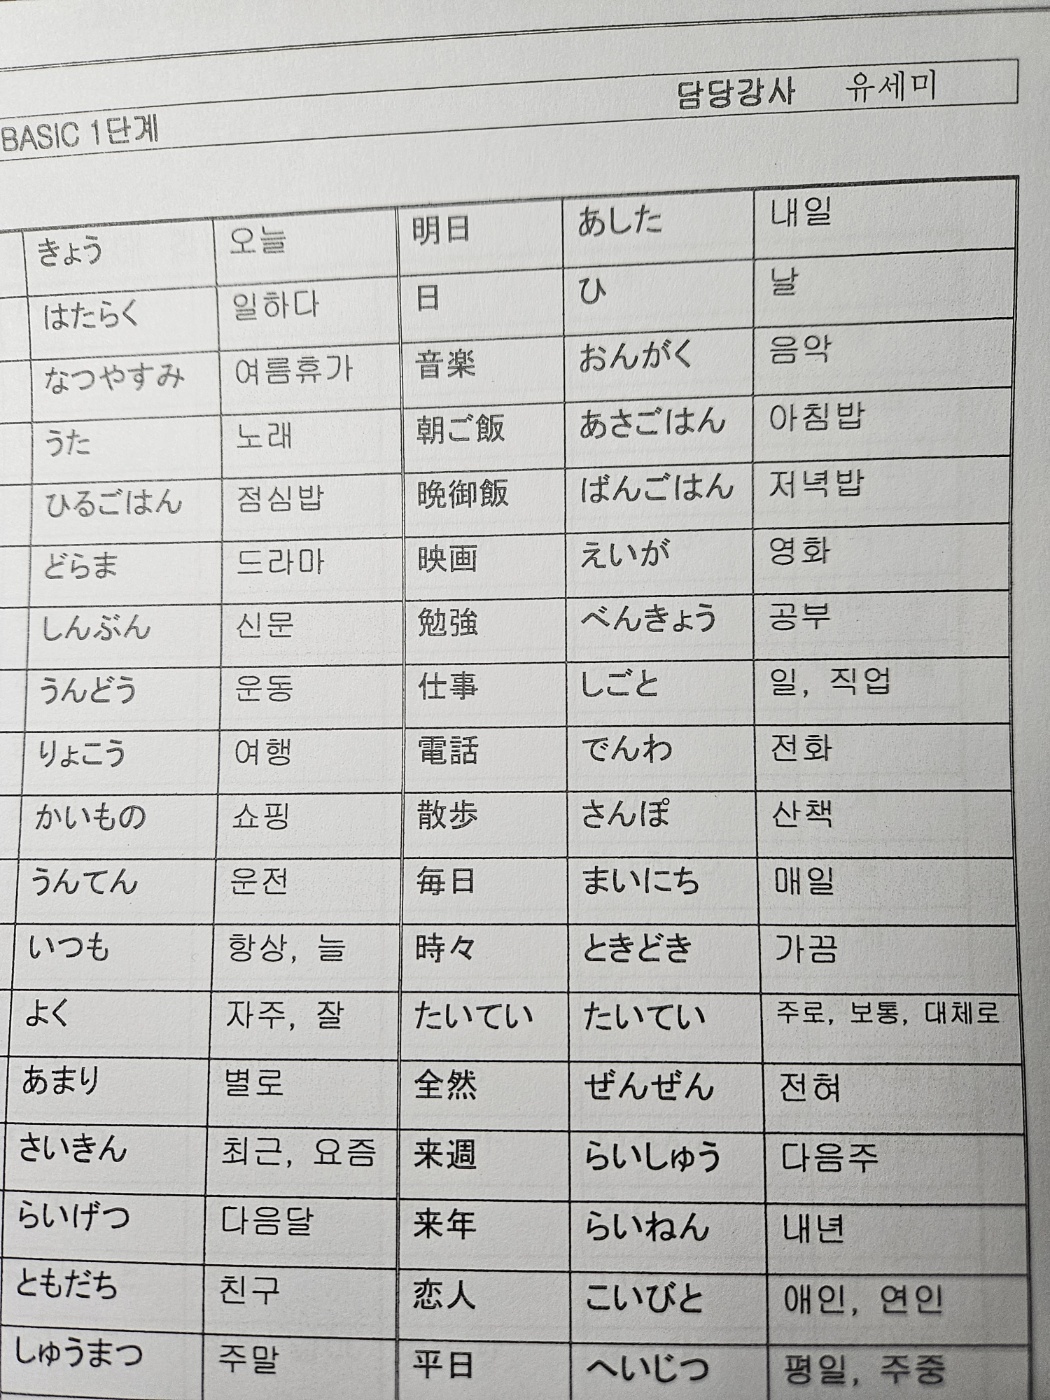 담당강사 유세미
BASIC 1단계
きょう 오늘 明日 あした 내일
はたらく 일하다 日 ひ 날
なつやすみ 여름휴가 音楽 おんがく 음악
うた 노래 朝ご飯 あさごはん 아침밥
ひるごはん 점심밥 晩御飯 ばんごはん 저녁밥
どらま 드라마 映画 えいが 영화
しんぶん 신문 勉強 べんきょう 공부
うんどう 운동 仕事 しごと 일, 직업
りょこう 여행 電話 でんわ 전화
かいもの 쇼핑 散歩 さんぽ 산책
うんてん 운전 毎日 まいにち 매일
いつも 항상, 늘 時々 ときどき 가끔
よく 자주, 잘 たいてい たいてい 주로, 보통, 대체로
あまり 별로 全然 ぜんぜん 전혀
さいきん 최근, 요즘 来週 らいしゅう 다음주
らいげつ 다음달 来年 らいねん 내년
ともだち 친구 恋人 こいびと 애인, 연인
しゅうまつ 주말 平日 へいじつ 평일, 주중